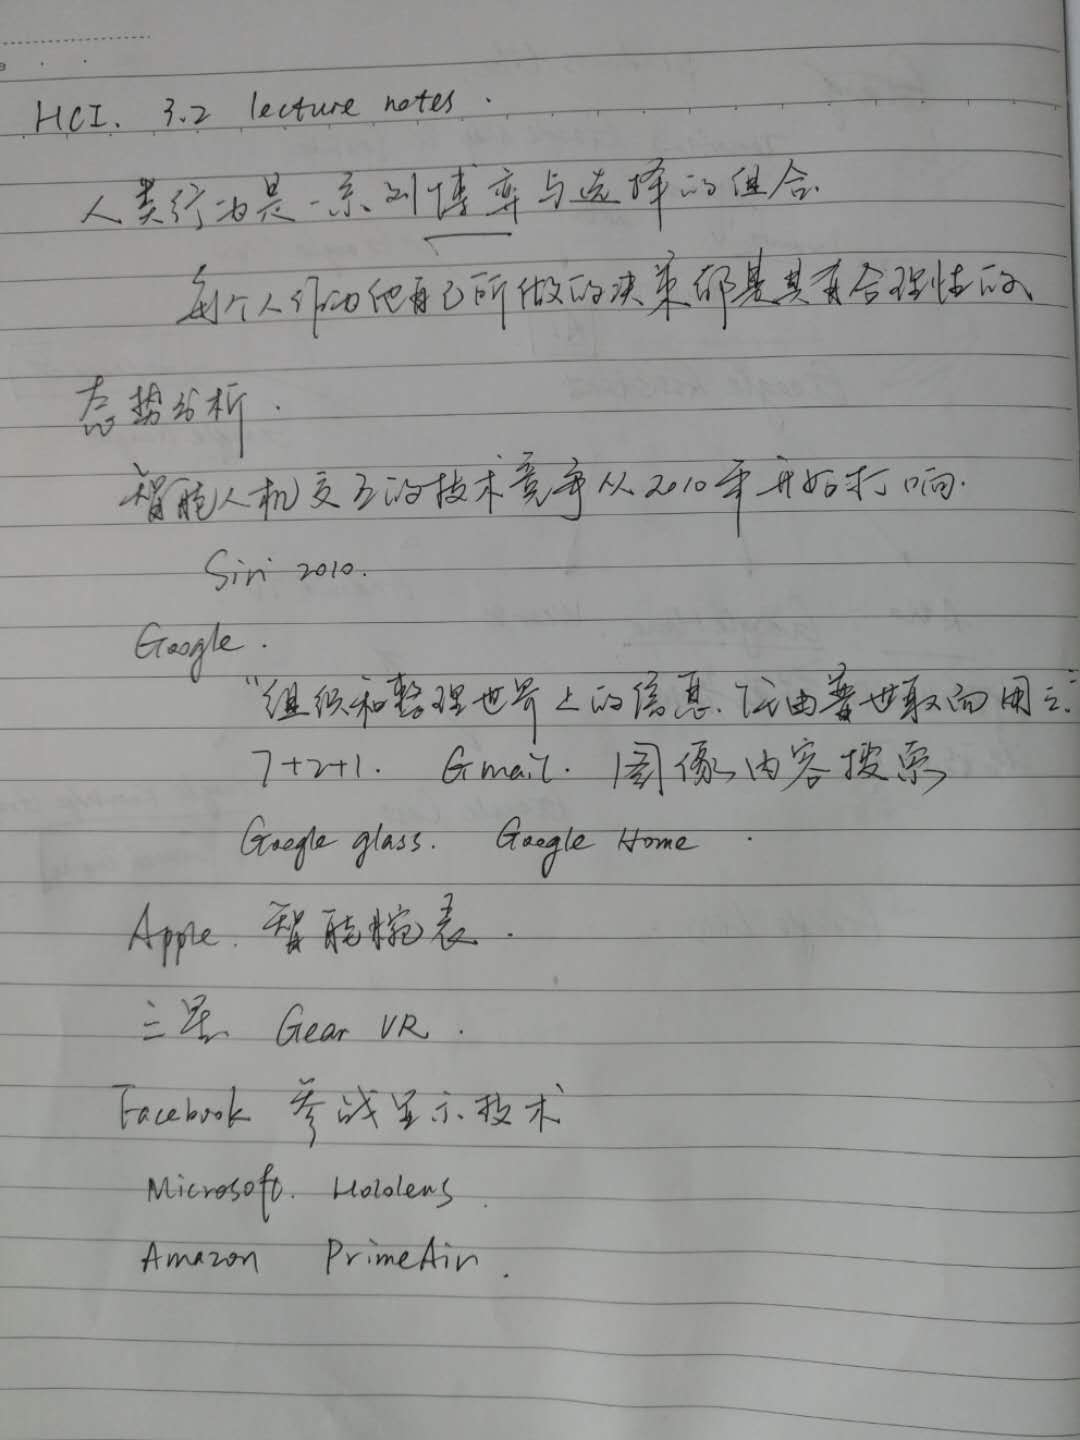 HCI. 3.2 lecture notes.
人类行为是一系列博弈与选择的组合.
每个人作为他自己所做的决策都是具有合理性的
态势分析.
智能人机交互的技术竞争从2010年开始打响.
Siri 2010.
Google.
"组织和整理世界上的信息.让由普世取而用之."
7+2+1. Gmail. 图像内容搜索
Google glass. Google Home
Apple. 智能腕表.
三星 Gear VR.
Facebook 参战显示技术
Microsoft. Hololens.
Amazon PrimeAir.